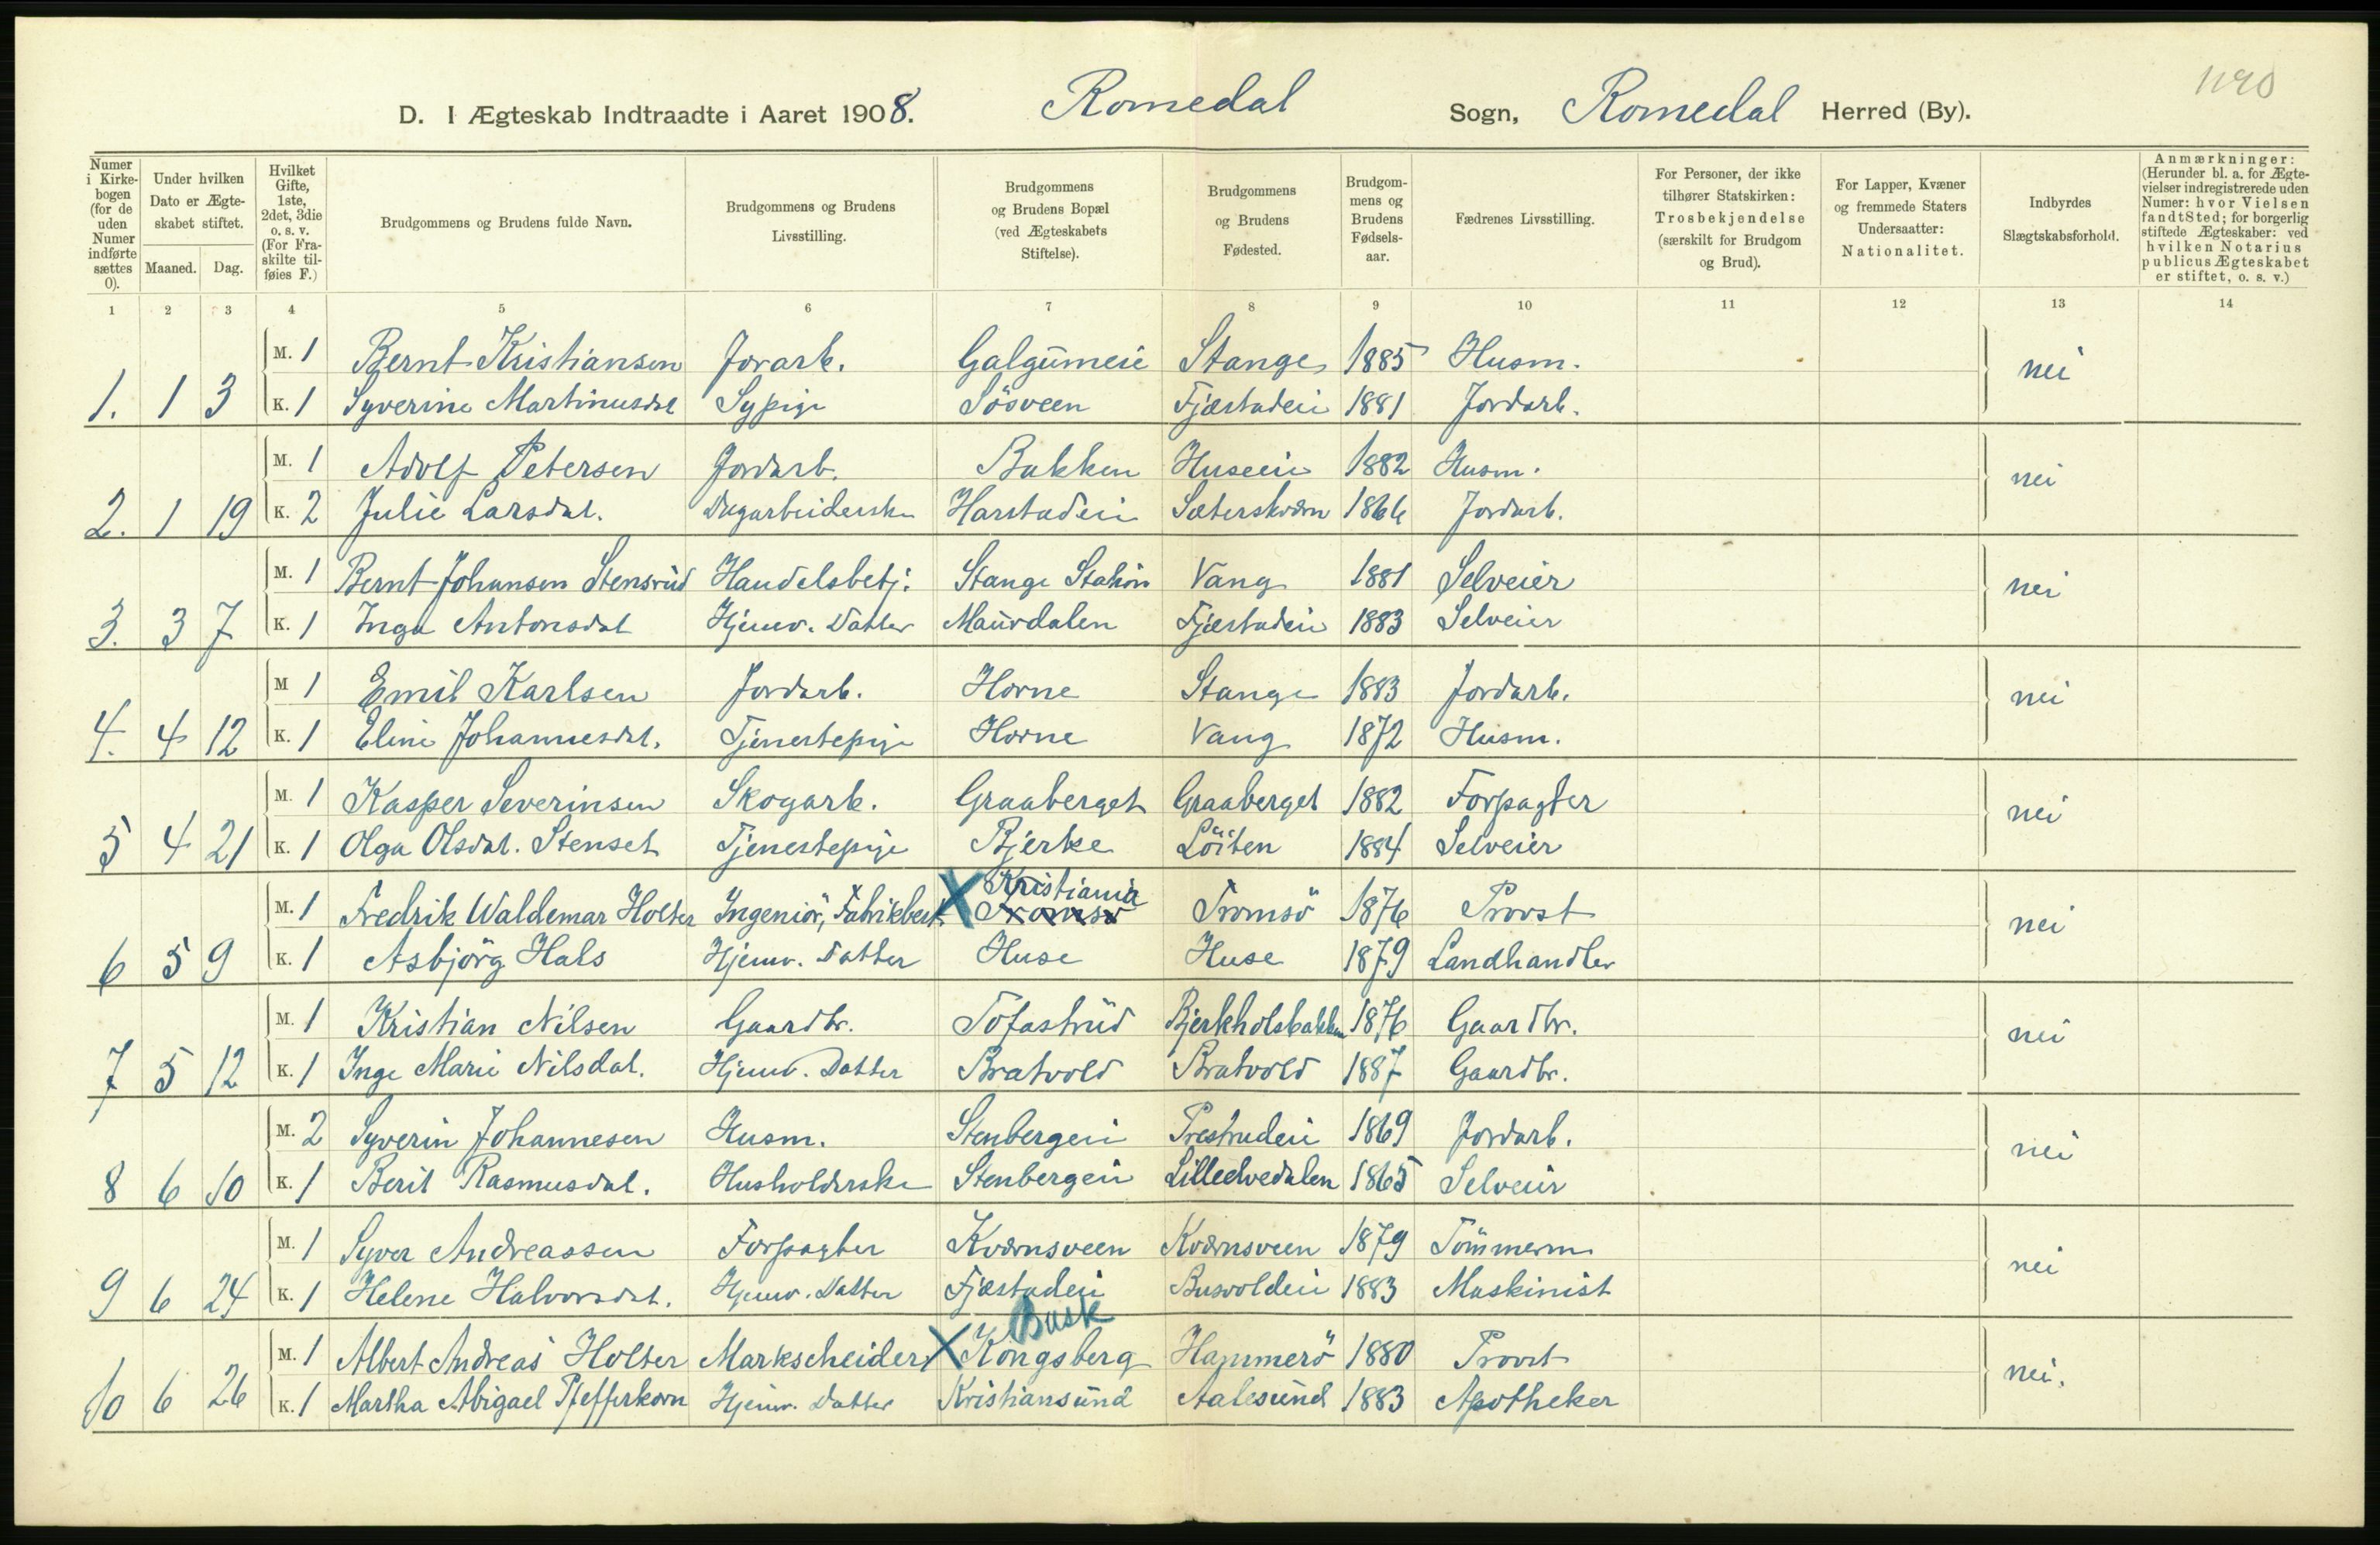 1190
D. I Ægteskab Indtraadte i Aaret 1908. Romedal Sogn, Romedal Herred (By).
Numer i Kirke-bogen (for de uden Numer indførte sættes 0).
Under hvilken Dato er Ægte-skabet stiftet.
Maaned. Dag.
Hvilket Gifte, 1ste, 2det, 3die o. s. v. (For Fra-skilte til-føies F.)
Brudgommens og Brudens fulde Navn.
Brudgommens og Brudens Livsstilling.
Brudgommens og Brudens Bopæl (ved Ægteskabets Stiftelse).
Brudgommens og Brudens Fødested.
Brudgom-mens og Brudens Fødsels-aar.
Fædrenes Livsstilling.
For Personer, der ikke tilhører Statskirken: Trosbekjendelse (særskilt for Brudgom og Brud).
For Lapper, Kvæner og fremmede Staters Undersaatter: Nationalitet.
Indbyrdes Slægtskabsforhold.
Anmærkninger: (Herunder bl. a. for Ægte-vielser indregistrerede uden Numer: hvor Vielsen fandt Sted; for borgerlig stiftede Ægteskaber: ved hvilken Notarius publicus Ægteskabet er stiftet, o. s. v.)
1 2 3 4 5 6 7 8 9 10 11 12 13 14
M. 1 Bernt Kristiansen Jorarb. Galgumeie Stange 1885 Husm. nei
1. 1 3 K. 1 Syverine Martinusdat Sypige Sösveen Fjæstadeie 1881 Jordarb.
M. 1 Adolf Petersen Jordarb. Bakken Huseeie 1882 Husm. nei
2. 1 19 K. 2 Julie Larsdat. Dagarbeiderske Harstadeie Sæterskværn 1866 Jordarb.
M. 1 Bernt Johansen Stensrud Handelsbetj. Stange Station Vang 1881 Selveier nei
3. 3 7 K. 1 Inga Antonsdat Hjemv. Datter Maurdalen Fjæstadeie 1883 Selveier
M 1 Emil Karlsen Jordarb. Horne Stange 1883 Jordarb. nei
4. 4 12 K. 1 Eline Johannesdat. Tjenestepige Horne Vang 1872 Husm.
M. 1 Kasper Severinsen Skogarb. Graaberget Graaberget 1882 Forpagter nei
5 4 21 K. 1 Olga Olsdat. Stenset Tjenestepige Bjerke Löiten 1884 Selveier
Kristiania
M. 1 Fredrik Waldemar Holter Ingeniör, Fabrikbest. X Tromsö Tromsö 1876 Provst nei
6 5 9 K. 1 Asbjörg Hals Hjemv. Datter Huse Huse 1879 Landhandler
M. 1 Kristian Nilsen Gaardbr. Tofastrud Bjerkholsbakken 1876 Gaardbr. nei
7 5 12 K. 1 Inge Marie Nilsdat. Hjemv. Datter Bratvold Bratvold 1887 Gaardbr.
M. 2 Syverin Johannesen Husm. Stenbergeie Prestrudeie 1869 Jordarb. nei
8 6 10 K. 1 Berit Rasmusdat. Husholderske Stenbergeie Lilleelvedalen 1865 Selveier
M. 1 Syver Andreassen Forpagter Kværnsveen Kværnsveen 1879 Tömmerm nei
9 6 24 K. 1 Helene Halvorsdat. Hjemv. Datter Fjæstadeie Busvoldeie 1883 Maskinist
Busk
M. 1 Albert Andreas Holter Markscheider X Kongsberg Hammerö 1880 Provst nei.
10 6 26 K. 1 Martha Abigael Pfefferkorn Hjemv. Datter Kristiansund Aalesund 1883 Apotheker